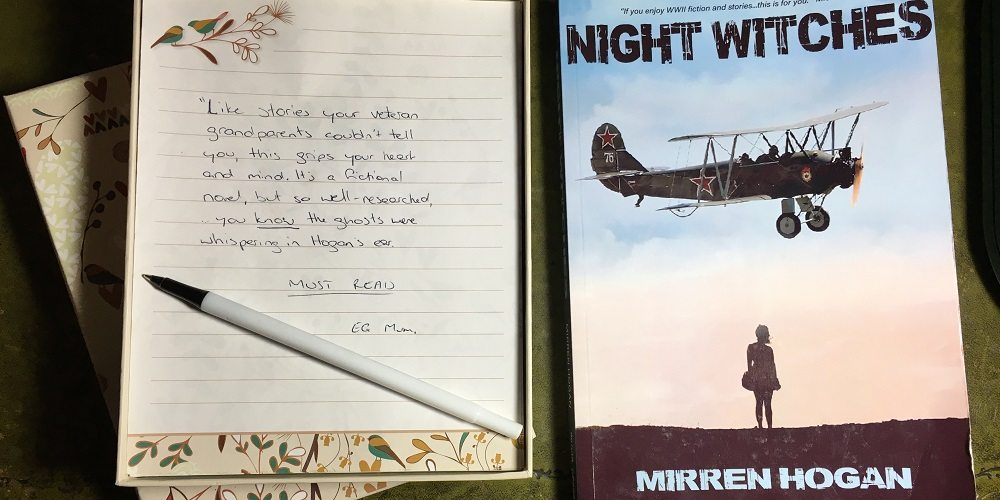 "Like stories your veteran
grandparents couldn't tell
you, this grips your heart
and mind. It's a fictional
novel, but so well-researched,
..you know the ghosts were
whispering in Hogan's ear.
MUST READ
EG Mum.
"If you enjoy WWII fiction and stories...this is for you."
NIGHT WITCHES
76
MIRREN HOGAN